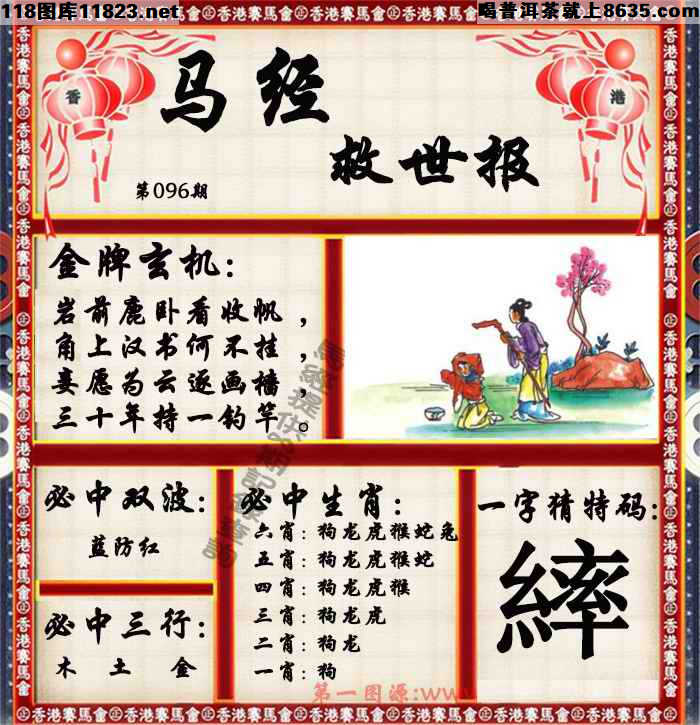 118图库11823.net
喝普洱茶就上8635.com
香
港
马经
救世报
第096期
金牌玄机：
岩前鹿卧看收帆，
角上汉书何不挂，
妾愿为云逐画樯，
三十年持一钓竿。
必中双波：
蓝防红
必中三行：
木 土 金
必中生肖：
六肖：狗龙虎猴蛇兔
五肖：狗龙虎猴蛇
四肖：狗龙虎猴
三肖：狗龙虎
二肖：狗龙
一肖：狗
一字猜特码：
繂
第一图源:www
香港賽馬會㊣香港賽馬會㊣香港賽馬會㊣香港賽馬會